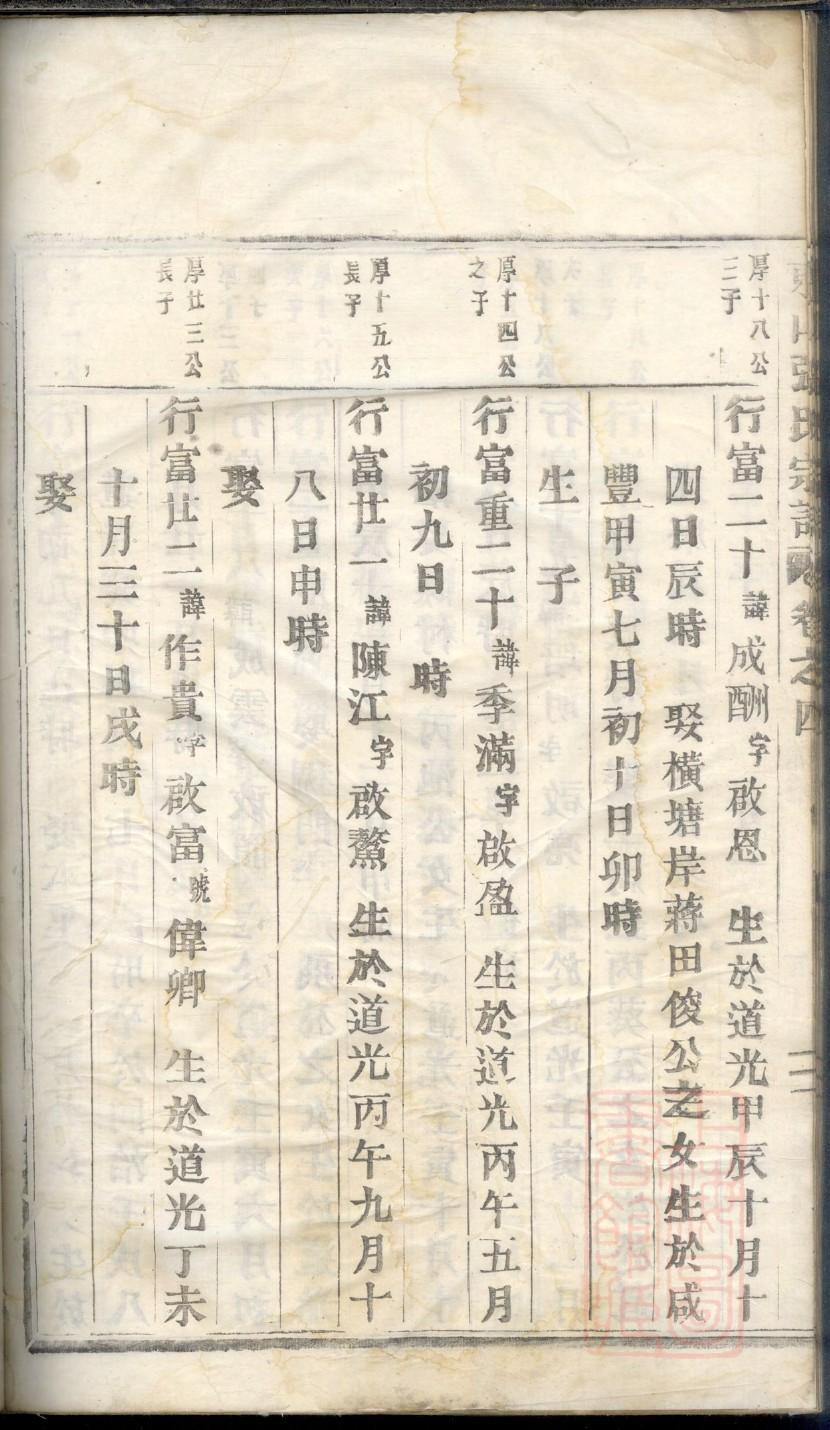 張氏宗譜 卷之四
厚十八公
三子
行富二十諱成酬字啟恩 生於道光甲辰十月十
四日辰時 娶橫塘岸蔣田俊公之女生於咸
豐甲寅七月初十日卯時
生 子
厚十四公
之子
行富重二十諱季滿字啟盈 生於道光丙午五月
初九日 時
厚十五公
長子
行富廿一諱陳江字啟鰲 生於道光丙午九月十
八日申時
娶
厚廿三公
長子
行富廿二諱作貴字啟富號偉卿 生於道光丁未
十月三十日戌時
娶